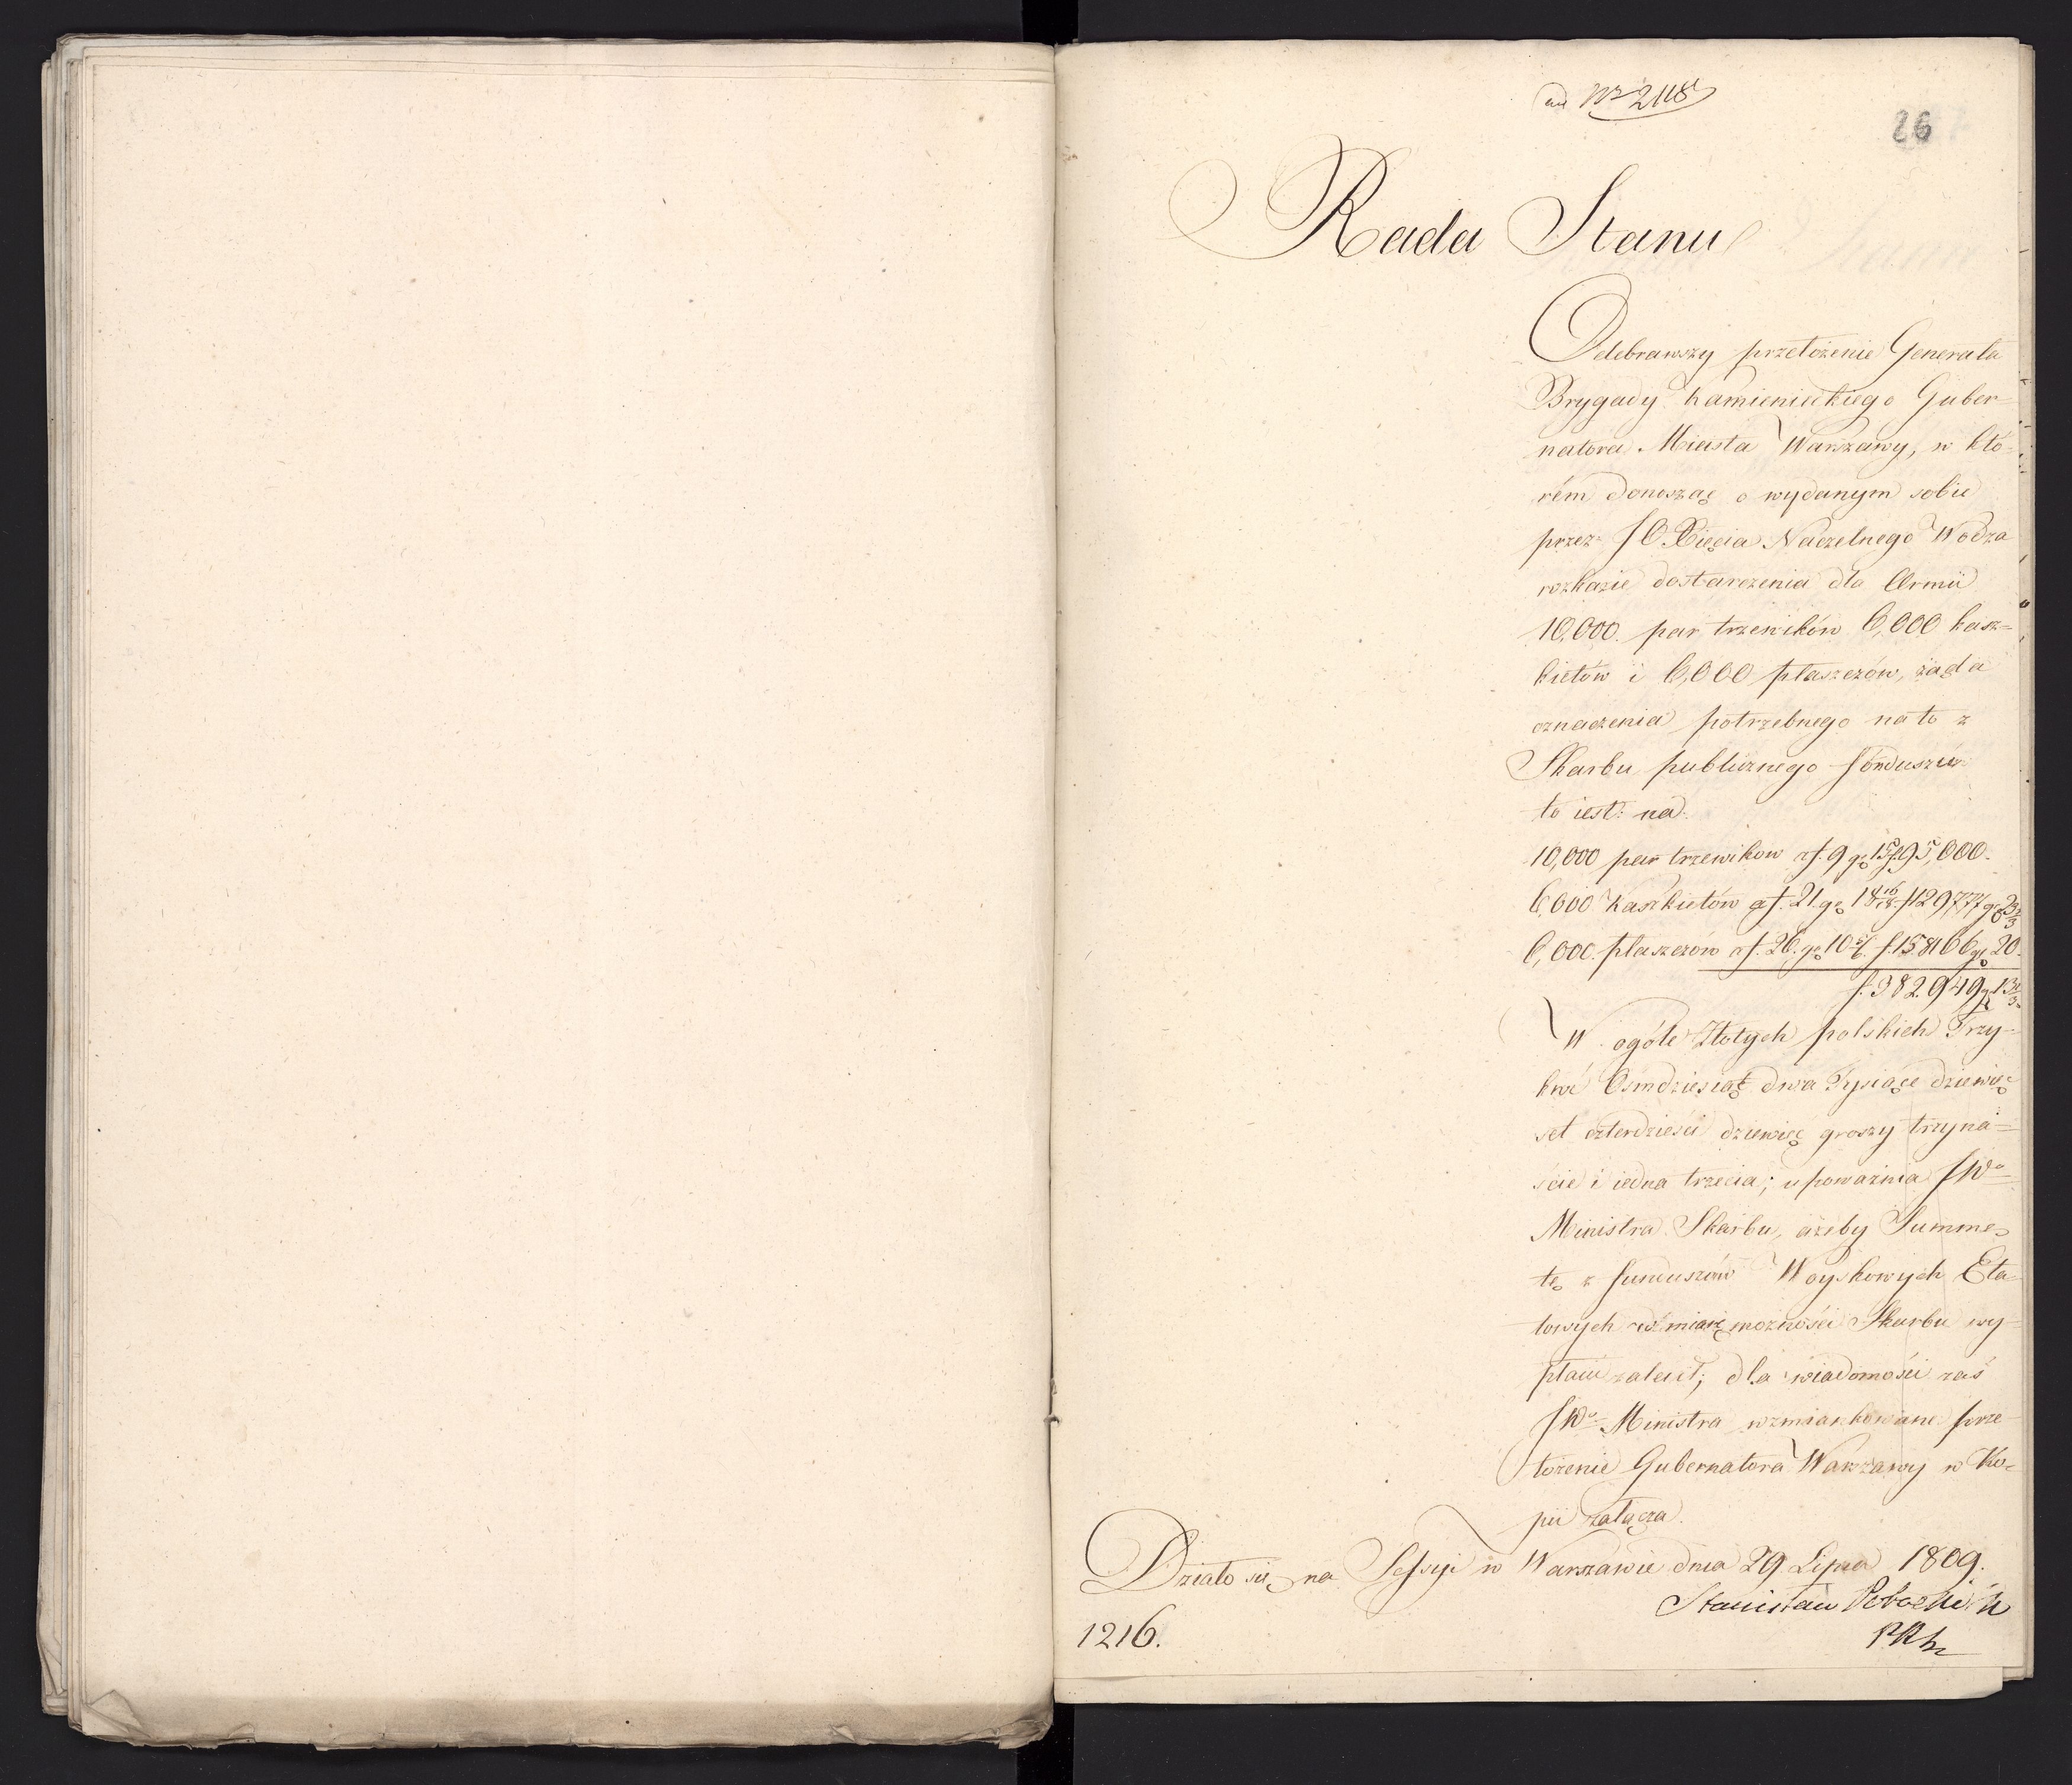 ad Nro 2118
26
Rada Stanu
Odebrawszy przełożenie Generała
Brygady Kamienieckiego Guber=
natora Miasta Warszawy, w któ=
rém donosząc o wydanym sobie
przez JO. Xięcia Naczelnego Wodza
rozkazie dostarczenia dla Armii
10,000. par trzewików 6,000 kasz=
kietów i 6,000 płaszczów, żąda
oznaczenia potrzebnego na to z
Skarbu publicznego fónduszu
to iest: na
10,000 par trzewikow af. 9 gr 15 f. 95,000.
6,000 Kaszkietów af. 21. gr 18 16/18 f 129777 gr 23 1/3
6,000. płaszczów af. 26. gr 10 5/6. f. 158166 gr 20.
f. 382.949 gr 13 1/3
W ogóle Złotych polskich Trzy=
kroć Ośmdziesiąt dwa Tysiące dziewięć
set czterdzieści dziewięć groszy trzyna=
ście i iedna trzecia; upoważnia JWo
Ministra Skarbu, ażeby Summę
tę z funduszów Woyskowych Eta=
towych w miarę możności Skarbu wy=
płacić zalecił; dla wiadomości zaś
JWo Ministra wzmiankowane prze=
łożenie Gubernatora Warszawy w Ko=
pii załącza.
Działo się na Sessyi w Warszawie dnia 29 Lipca 1809.
Stanisław Potocki
1216.